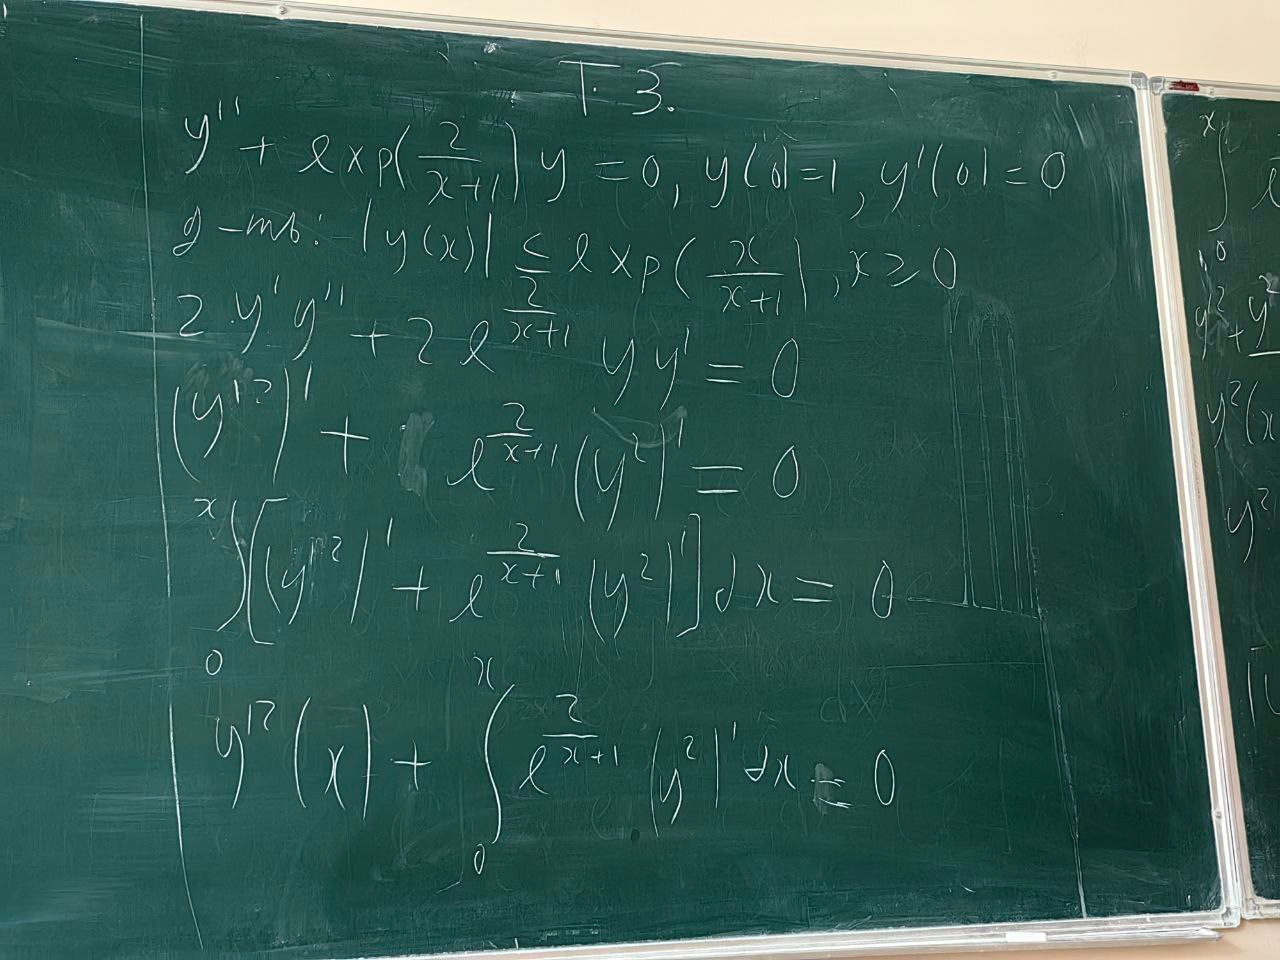 T.3.
y'' + exp(2/(x+1)) y = 0, y(0)=1, y'(0)=0
д-ть: |y(x)| ≤ exp(x/(x+1)), x ≥ 0
2 y' y'' + 2 e^(2/(x+1)) y y' = 0
(y'^2)' + e^(2/(x+1)) (y^2)' = 0
∫_0^x [(y'^2)' + e^(2/(x+1)) (y^2)'] dx = 0
y'^2(x) + ∫_0^x e^(2/(x+1)) (y^2)' dx = 0